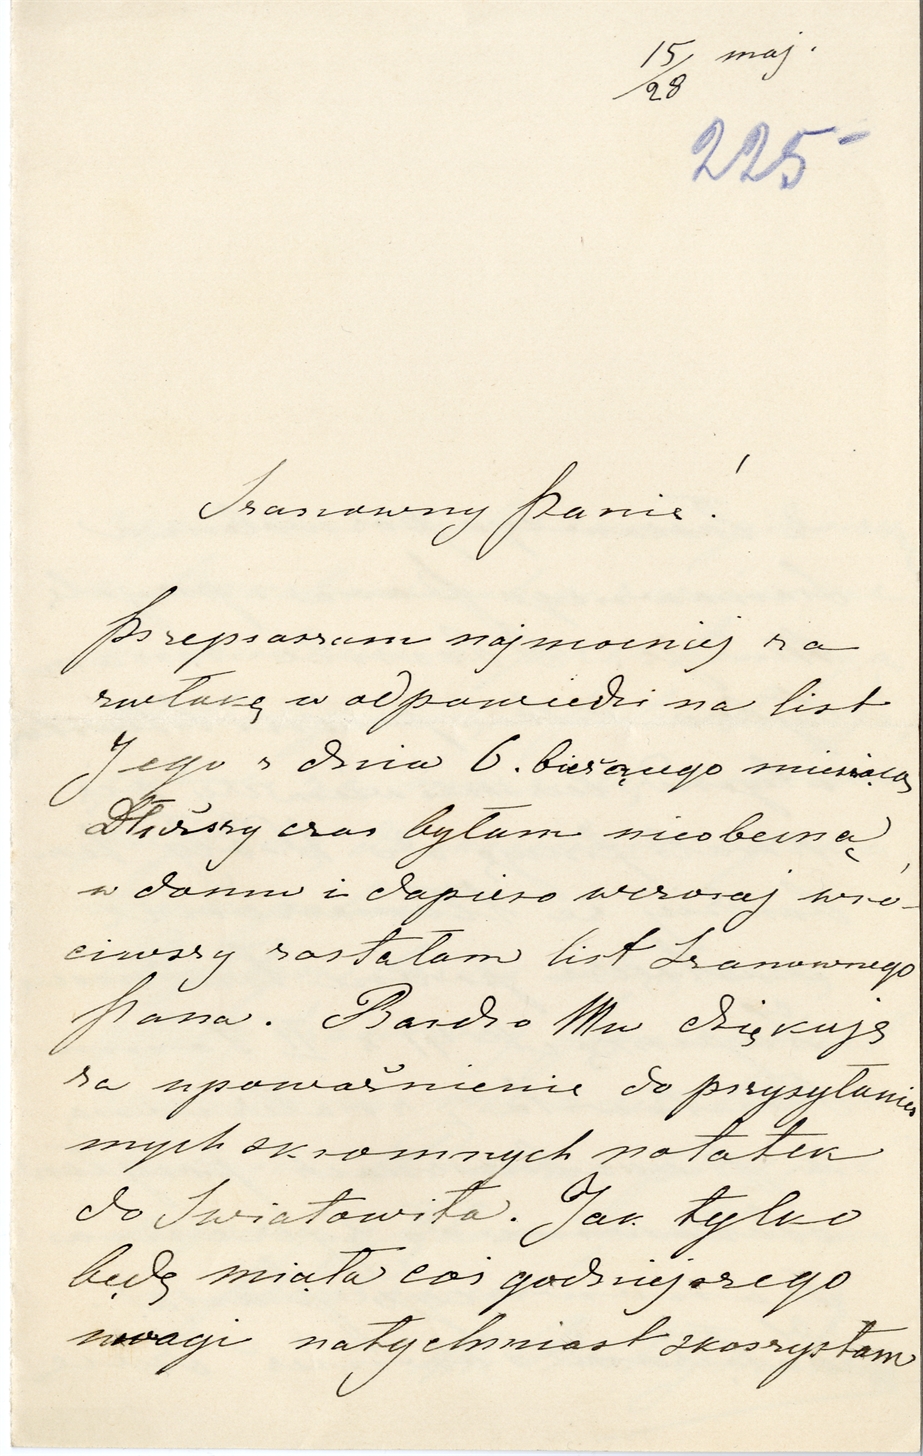 15/28 maj.
225-
Szanowny Panie!
Przepraszam najmocniej za
zwłokę w odpowiedzi na list
Jego z dnia 6. bieżącego miesiąca
Dłuższy czas byłam nieobecną
w domu i dopiero wczoraj wró-
ciwszy zastałam list Szanownego
Pana. Bardzo Mu dziękuję
za upoważnienie do przysyłania
mych skromnych notatek
do Swiatowita. Jak tylko
będę miała coś godniejszego
uwagi natychmiast skorzystam